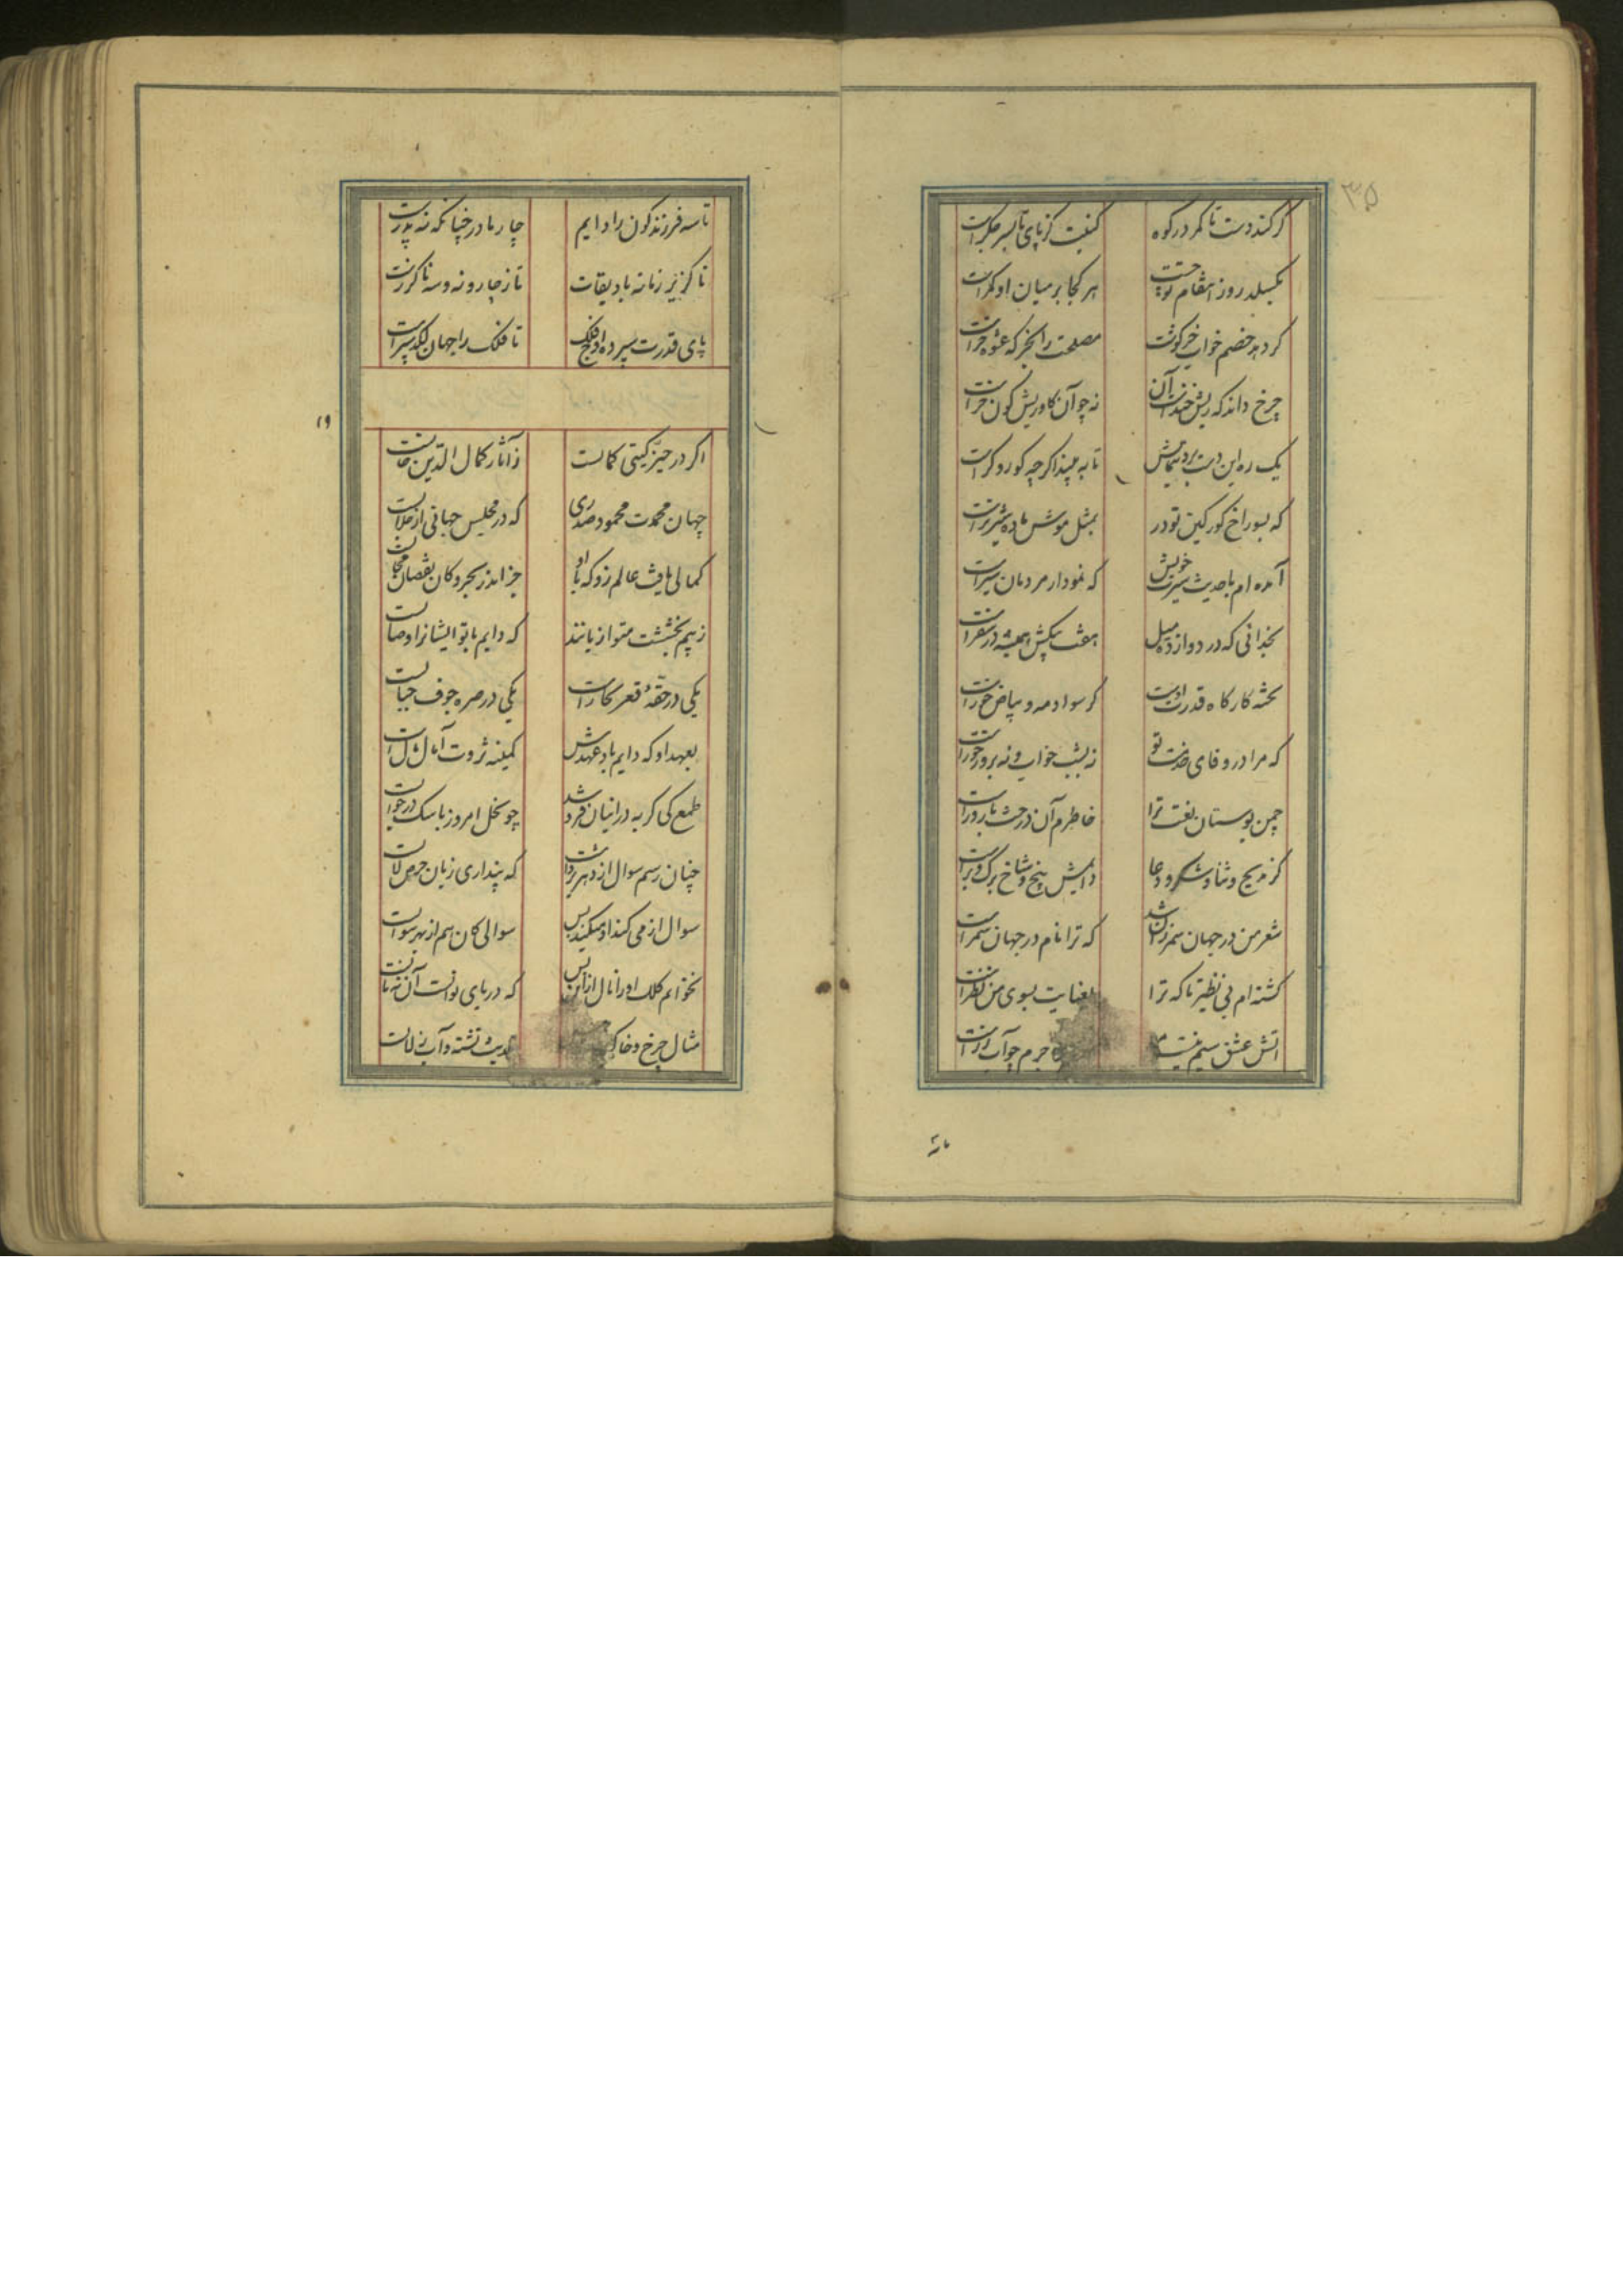 ۳۵
گر کند دست تا کمر در کوه
کیست کز پای تا بسر جگرست
بکسلد روز انتقام تو چست
هر کجا بر میان او کمرست
کرد بر خصم خواب خرگوشت
مصلحت را نخر که عشوه خرست
چرخ داند که ریش خندست آن
نه چو آن کاو ریش کون خرست
یک ره این دست برد بنمایش
تا به بیند اگر چه کور و کرست
که بسوراخ کور کین تو در
بمثل موش ماده شیر نرست
آمده ام با حدیث سیرت خویش
که نمودار مردمان سیرست
بخدائی که در دوازده میل
هفت پیکش همیشه در سفرست
تخته کارگاه قدرت اوست
گر سواد مه و بیاض خورست
که مرا در وفای خدمت تو
نه بشب خواب و نه بروز خورست
چمن بوستان نعت ترا
خاطرم آن درخت بارورست
کز مدیح و ثنا و شکر و دعا
دایمش بیخ و شاخ و برگ و برست
شعر من در جهان سمر زان شد
که ترا نام در جهان سمرست
گشته ام بی نظیر تا که ترا
بعنایت بسوی من نظرست
آتش عشق سیم نیست مرا
لاجرم چو آب زرست
تا سه
تا سه فرزند کون را دایم
چار مادر چنانکه نه پدرست
ناگزیر زمانه باد بقات
تا ز چار و نه و سه ناگزرست
پای قدرت سپرده اوج فلک
تا فلک را جهان لکدسپرست
۱۹
اگر در حیز گیتی کمالست
ز آثار کمال الدین خالست
جهان محمدت محمود صدری
که در مجلس جهانی از جلالست
کمالی یافت عالم زو که با او
جز اندر بحر و کان نقصان محالست
ز بیم بخششت متواریانند
که دایم با تو ایشانرا وصالست
یکی در حقهٔ قعر بحارست
یکی در صره جوف جبالست
بعهد او که دایم باد عهدش
کمینه ثروت آمال مالست
طمع کی گربه در انبان فروشد
چو بخل امروز با سگ در جوالست
چنان رسم سوال از دهر برداشت
که پنداری زبان حرص لالست
سوال از می کند او میکند بس
سوالی کان هم از بهر سوالست
نخوانم کلک او را نال ازین پس
که دریای نوالست آن نه نالست
مثال چرخ و خاک
حدیث تشنه و آب زلالست